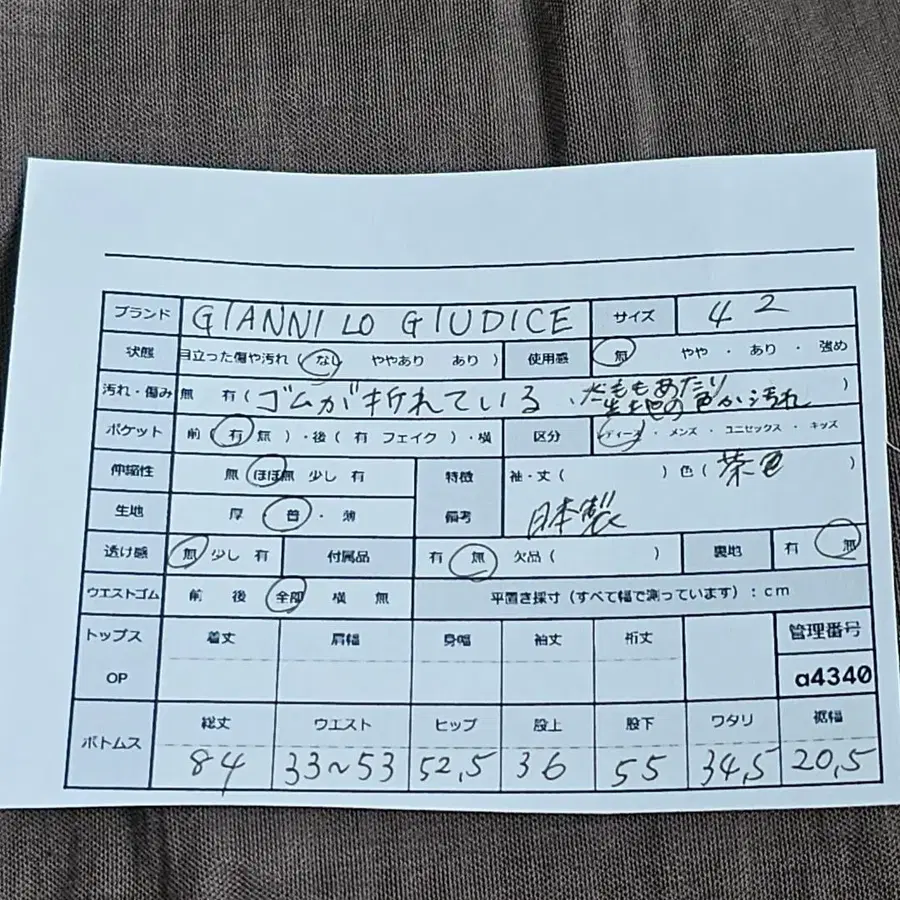 ブランド GIANNI LO GIUDICE サイズ 42
状態 目立った傷や汚れ ( なし ややあり あり ) 使用感 無 やや ・ あり ・ 強め
汚れ・傷み 無 有 ( ゴムが折れている 、太ももあたり
生地の色か汚れ )
ポケット 前 ( 有 無 ) ・後 ( 有 フェイク ) ・横 区分 レディース ・ メンズ ・ ユニセックス ・ キッズ
伸縮性 無 ほぼ無 少し 有 特徴 袖・丈 ( ) 色 ( 茶色 )
生地 厚 普 ・ 薄 備考 日本製
透け感 無 少し 有 付属品 有 無 欠品 ( ) 裏地 有 無
ウエストゴム 前 後 全部 横 無 平置き採寸 (すべて幅で測っています) : cm
トップス 着丈 肩幅 身幅 袖丈 裄丈 管理番号
OP a4340
ボトムス 総丈 ウエスト ヒップ 股上 股下 ワタリ 裾幅
84 33~53 52,5 36 55 34,5 20,5